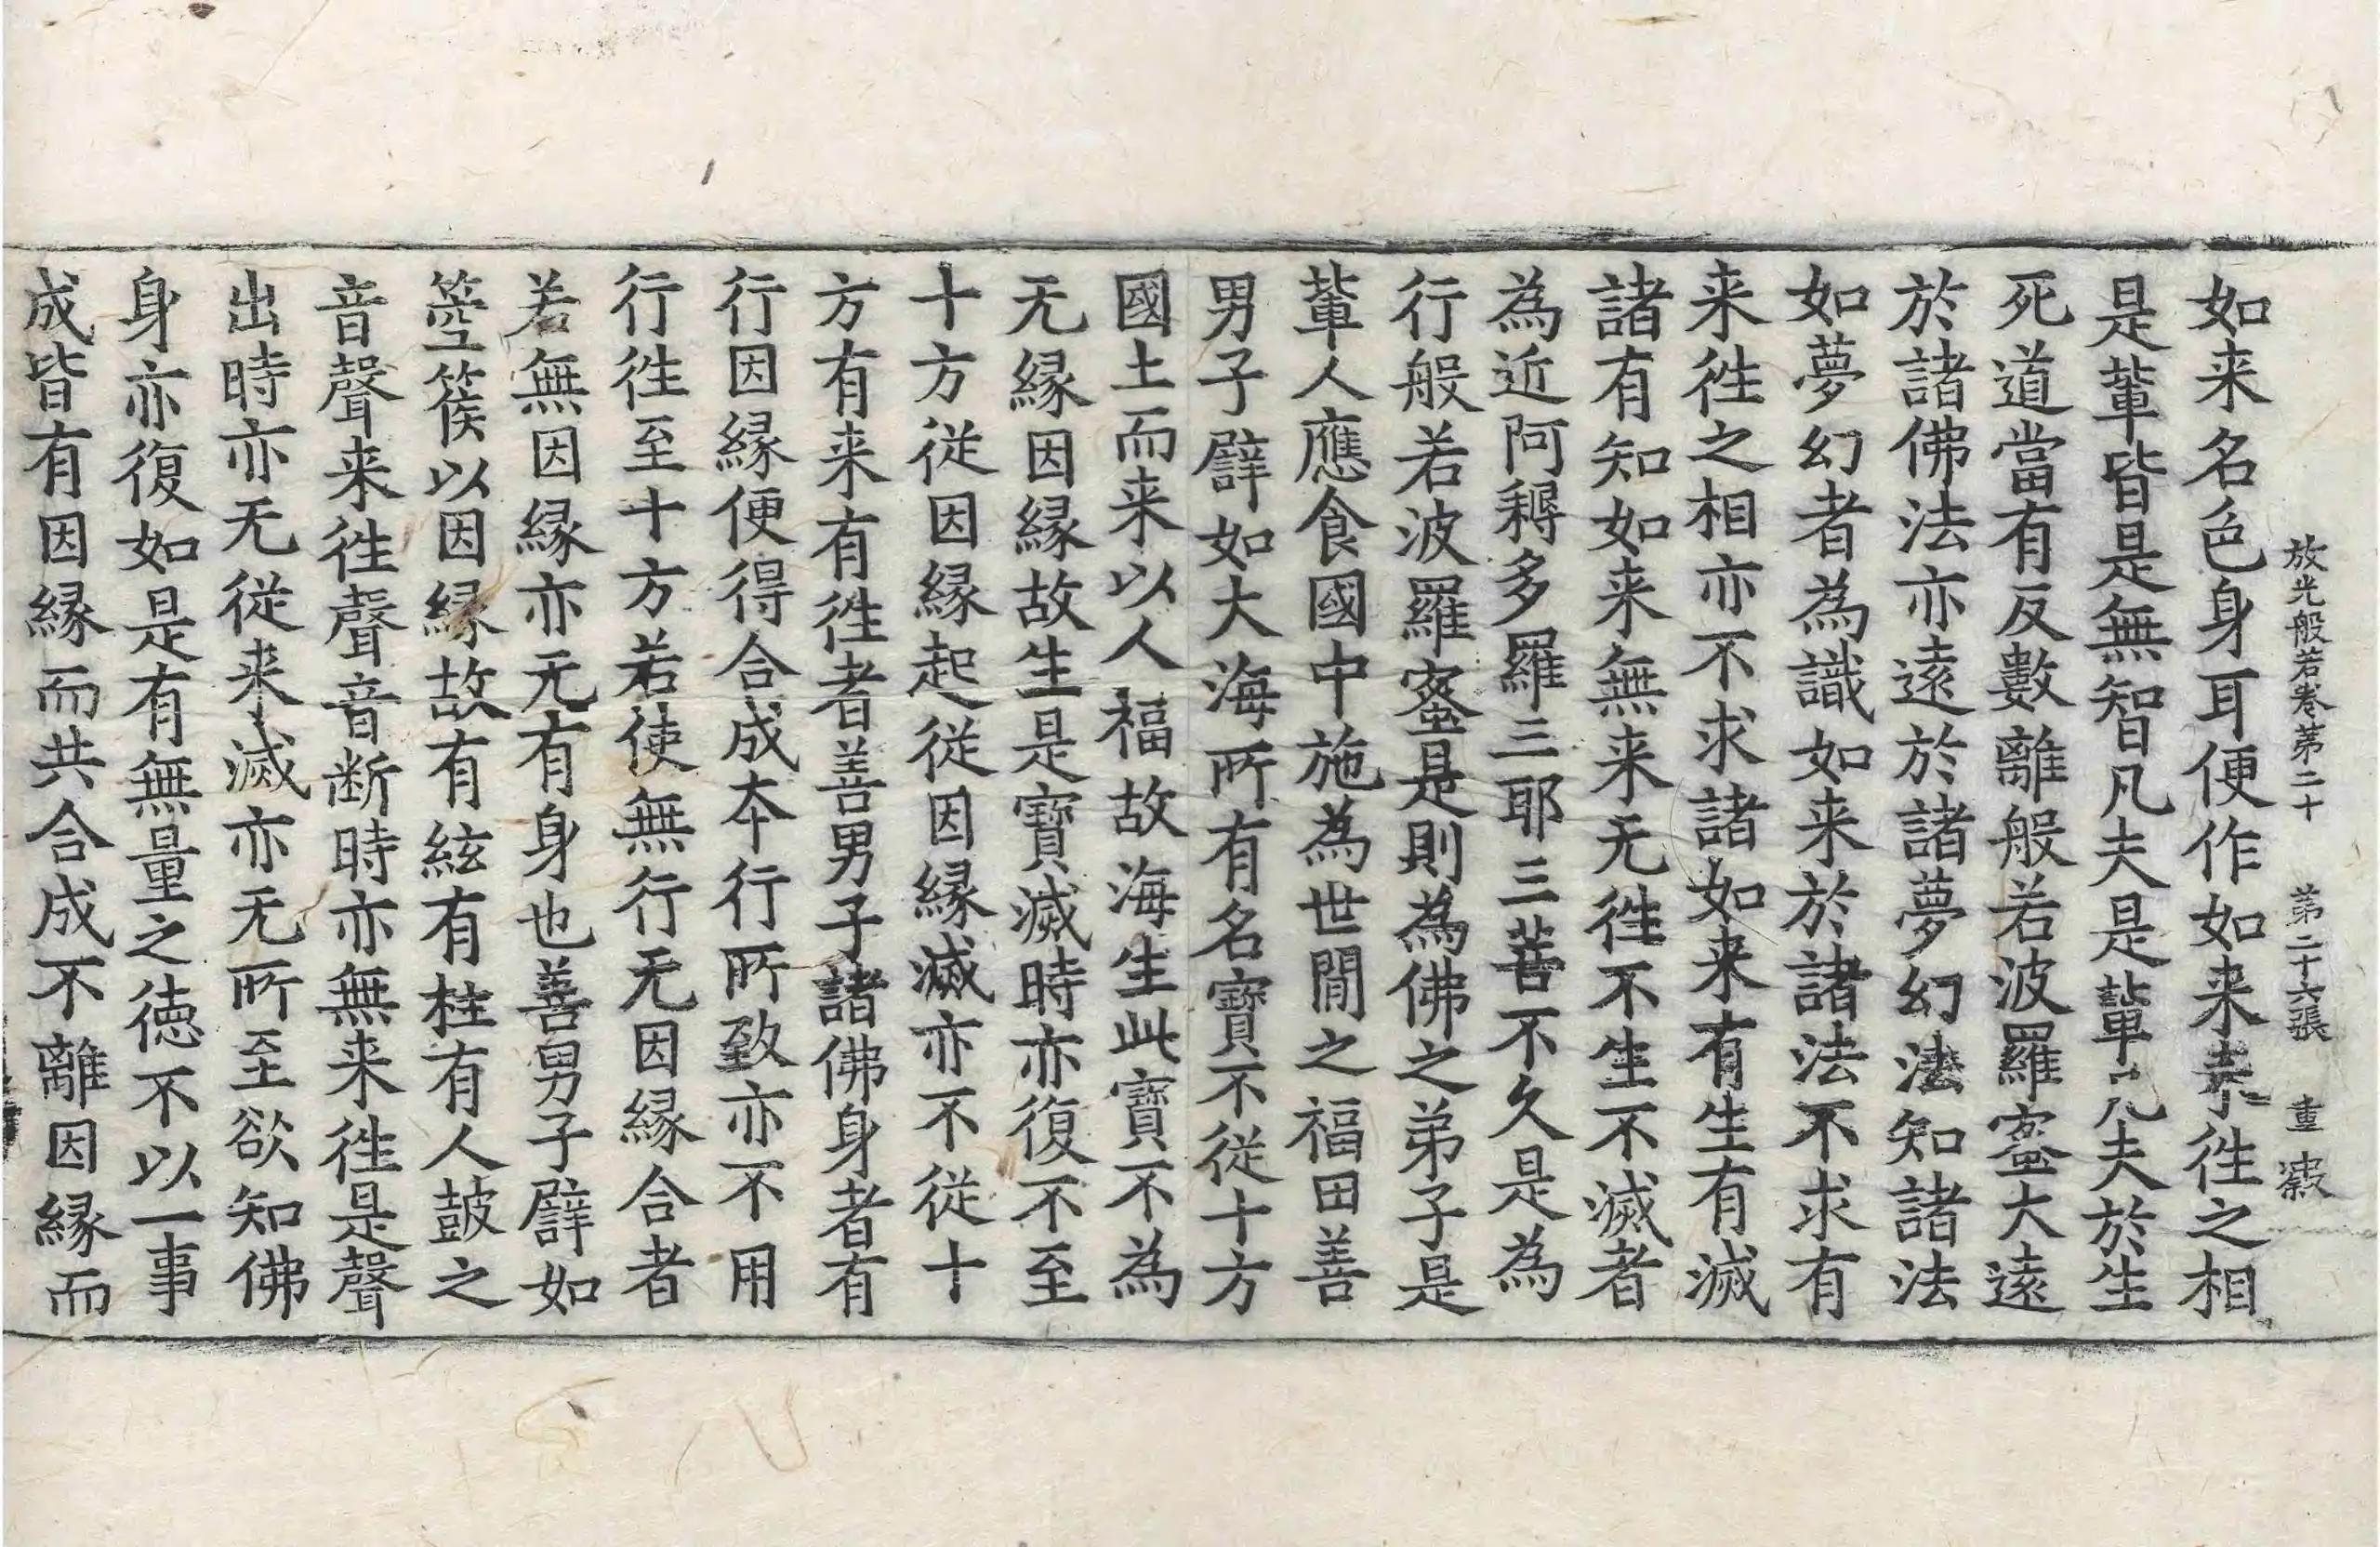 放光般若卷第二十 第二十六張 重
如来名色身耳便作如来来徃之相
是軰皆是無智凡夫是軰凡夫於生
死道當有反數離般若波羅蜜大遠
於諸佛法亦遠於諸夢幻法知諸法
如夢幻者為識如来於諸法不求有
来徃之相亦不求諸如来有生有滅
諸有知如来無来无徃不生不滅者
為近阿耨多羅三耶三菩不久是為
行般若波羅蜜是則為佛之弟子是
軰人應食國中施為世間之福田善
男子譬如大海所有名寶不從十方
國土而来以人福故海生此寶不為
无緣因緣故生是寶滅時亦復不至
十方從因緣起從因緣滅亦不從十
方有来有徃者善男子諸佛身者有
行因緣便得合成夲行所致亦不用
行徃至十方若使無行无因緣合者
若無因緣亦无有身也善男子譬如
箜篌以因緣故有絃有柱有人鼓之
音聲来徃聲音断時亦無来徃是聲
出時亦无從来滅亦无所至欲知佛
身亦復如是有無量之徳不以一事
成皆有因緣而共合成不離因緣而